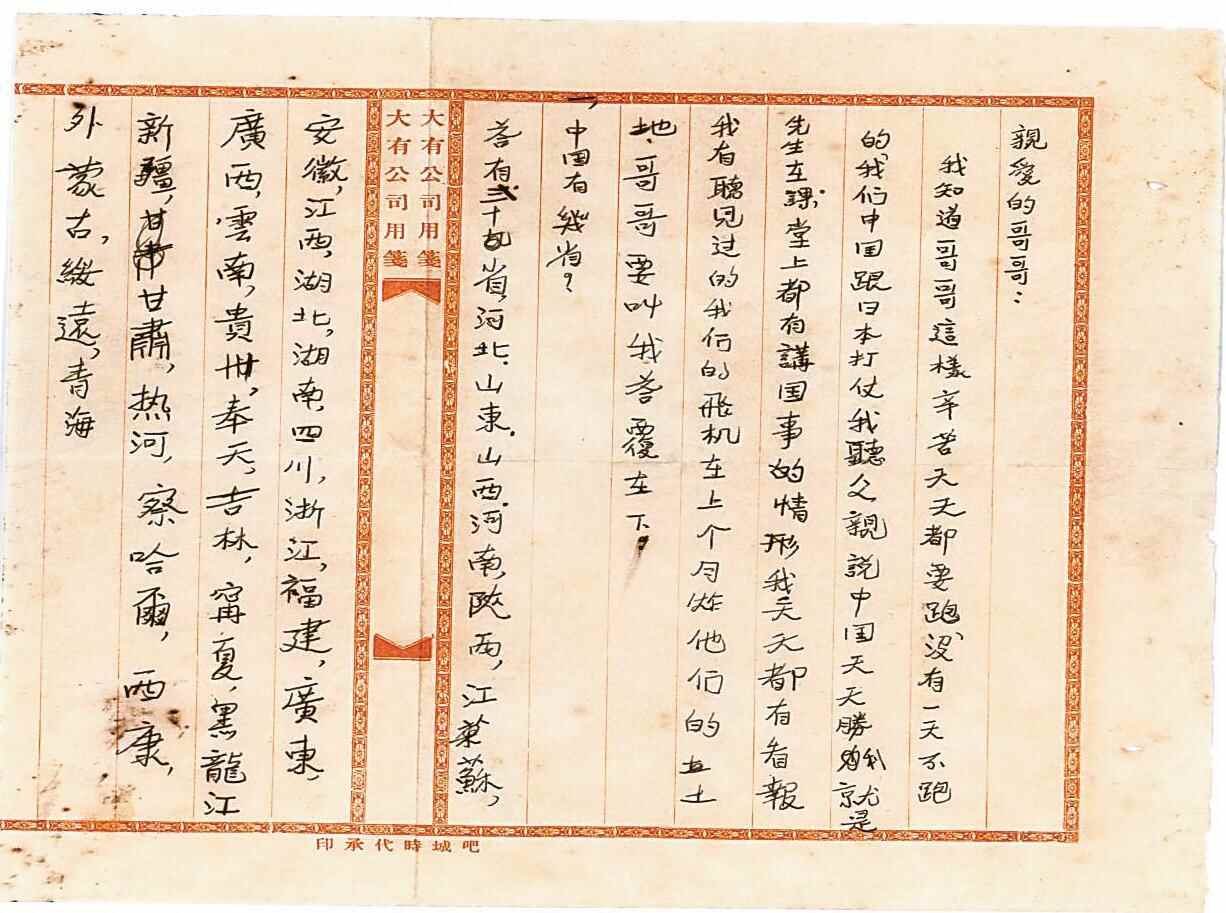 親愛的哥哥：
我知道哥哥這樣辛苦天天都要跑没有一天不跑
的我们中国跟日本打仗我聽父親説中国天天勝我就是
先生在課堂上都有講国事的情形我天天都有看報
我有聽見过的我们的飛机在上个月炸他们的土
地，哥哥要叫我荅覆在下，
一，中国有幾省？
荅有二十九省，河北，山東，山西，河南，陜西，江蘇，
大有公司用箋
大有公司用箋
安徽，江西，湖北，湖南，四川，浙江，福建，廣東，
廣西，雲南，貴州，奉天，吉林，甯夏，黑龍江
新疆，甘肅，热河，察哈爾，西康，
外蒙古，綏遠，青海
吧城時代承印